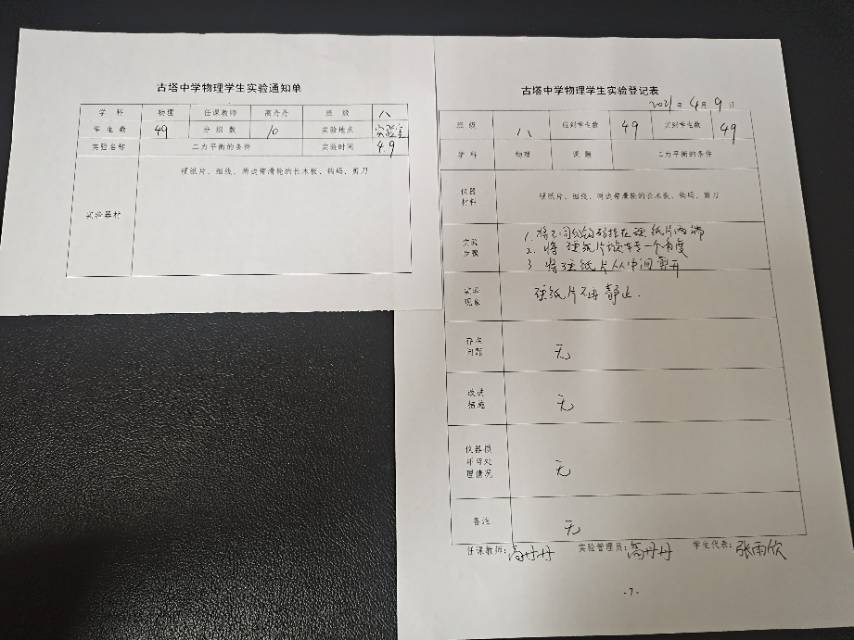 古塔中学物理学生实验通知单
学 科 物理 任课教师 高丹丹 班 级 八
学生数 49 分组数 10 实验地点 实验室
实验名称 二力平衡的条件 实验时间 4.9
实验器材 硬纸片、细线、两边带滑轮的长木板、钩码、剪刀
古塔中学物理学生实验登记表
2021年4月9日
班 级 八 应到学生数 49 实到学生数 49
学 科 物理 课 题 二力平衡的条件
仪器
材料
硬纸片、细线、两边带滑轮的长木板、钩码、剪刀
实验
步骤
1. 将不同钩码挂在硬纸片两端
2. 将硬纸片扭转一个角度
3. 将硬纸片从中间剪开
实验
现象
硬纸片不再静止.
存在
问题
无
改进
措施
无
仪器损
坏与处
理情况
无
备注
无
任课教师:高丹丹 实验管理员:高丹丹 学生代表:张雨欣
-7-